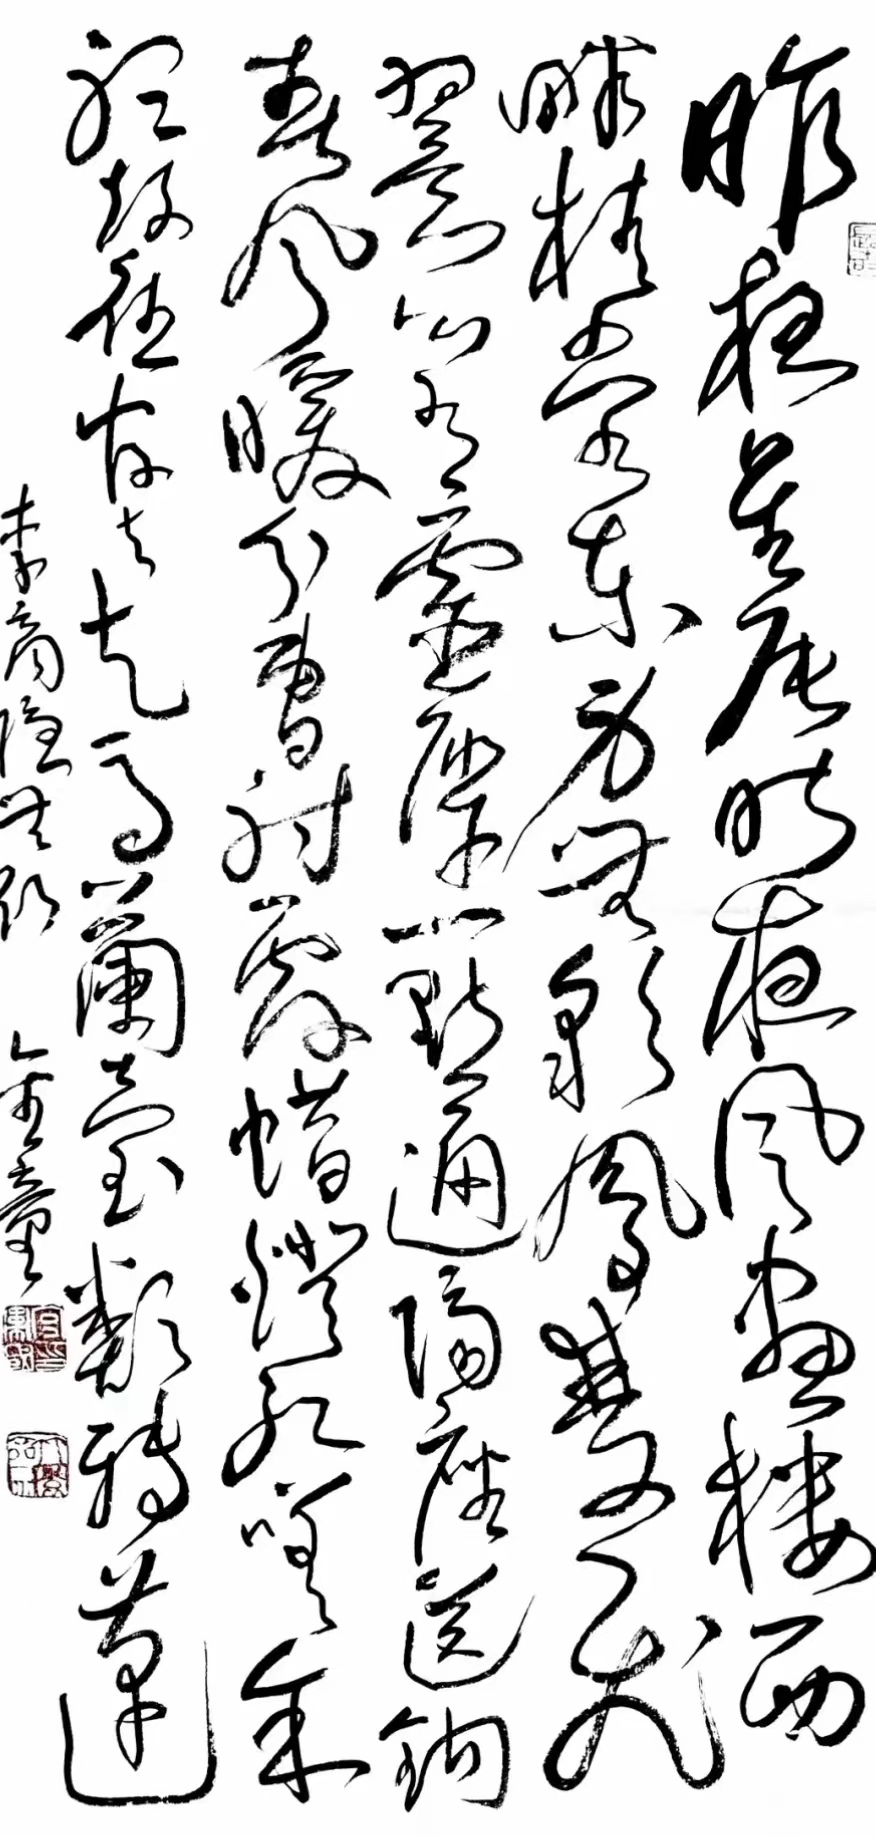 昨夜星辰昨夜風畫樓西
畔桂堂東身無彩鳳雙飛
翼心有靈犀一點通隔座送鉤
春風暖分曹射覆蜡燈紅嗟余
聽鼓應官去走馬蘭臺類轉蓬
李商隱無題 金童